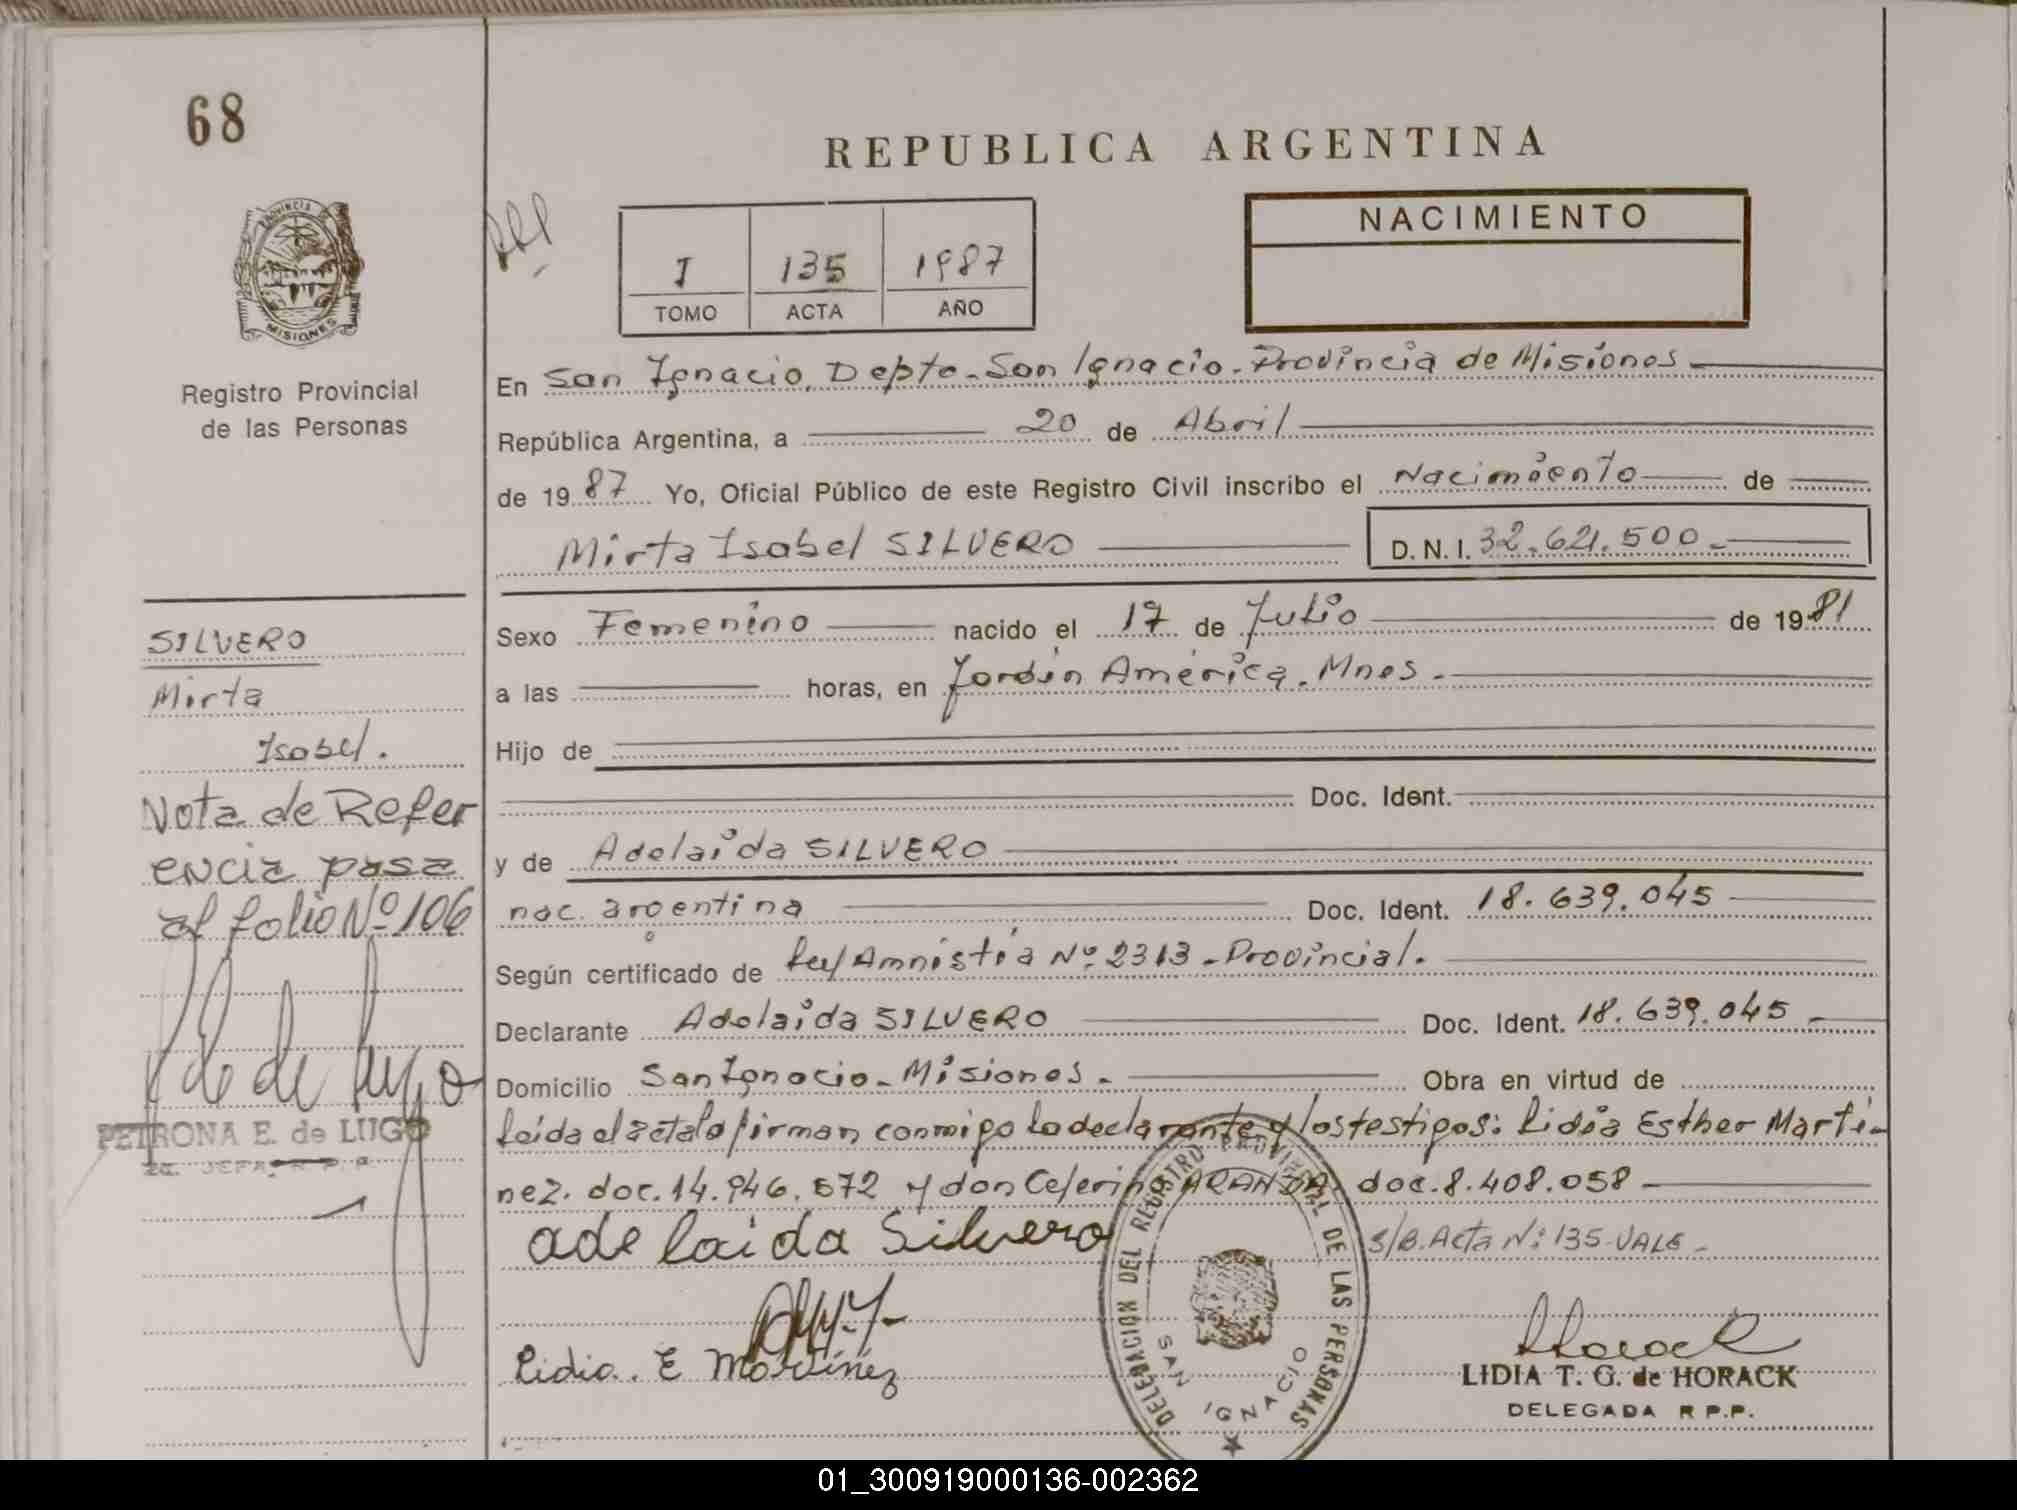 68
REPUBLICA ARGENTINA
PROVINCIA DE
MISIONES
Registro Provincial
de las Personas
I 135 1987
TOMO ACTA AÑO
NACIMIENTO
En San Ignacio, Depto-San Ignacio-Provincia de Misiones
República Argentina, a 20 de Abril
de 1987 Yo, Oficial Público de este Registro Civil inscribo el Nacimiento de
Mirta Isabel SILVERO D.N.I. 32.621.500.-
Sexo Femenino nacido el 17 de Julio de 1981
a las horas, en Jardin América. Mnes.
Hijo de
Doc. Ident.
y de Adelaida SILVERO
nac. argentina Doc. Ident. 18.639.045
Según certificado de Ley Amnistia Nº 2313-Provincial.
Declarante Adelaida SILVERO Doc. Ident. 18.639.045
Domicilio San Ignacio-Misiones. Obra en virtud de
Leida el acta la firman conmigo la declarante y los testigos: Lidia Esther Marti-
nez. doc. 14.946.572 y don Ceferino ARANDA doc. 8.408.058
adelaida Silvero S/B. Acta Nº 135-VALE-
Lidia. E Martinez
Horack
LIDIA T. G. de HORACK
DELEGADA R P.P.
DELEGACION DEL REGISTRO PROVINCIAL DE LAS PERSONAS
SAN IGNACIO
SILVERO
Mirta
Isabel.
Nota de Refer
encia pasa
al folio Nº 106
de Lugo
PETRONA E. de LUGO
2a. JEFA R.P.P.
01_300919000136-002362